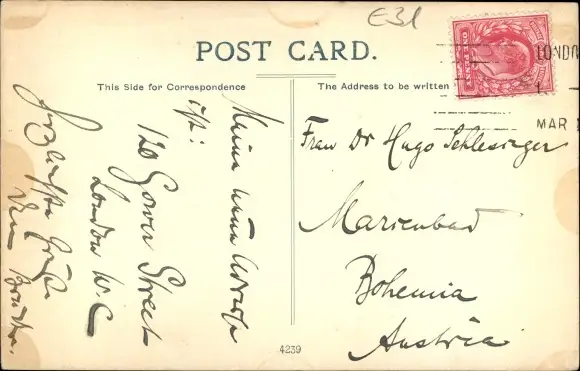 E31
POST CARD.
This Side for Correspondence
The Address to be written
LONDON
1
MAR
Meine neue Adresse
ist:
120 Gower Street
London W.C
Herzlichste Grüße
Dein Bruder.
Frau Dr Hugo Schlesinger
Marienbad
Bohemia
Austria
4239